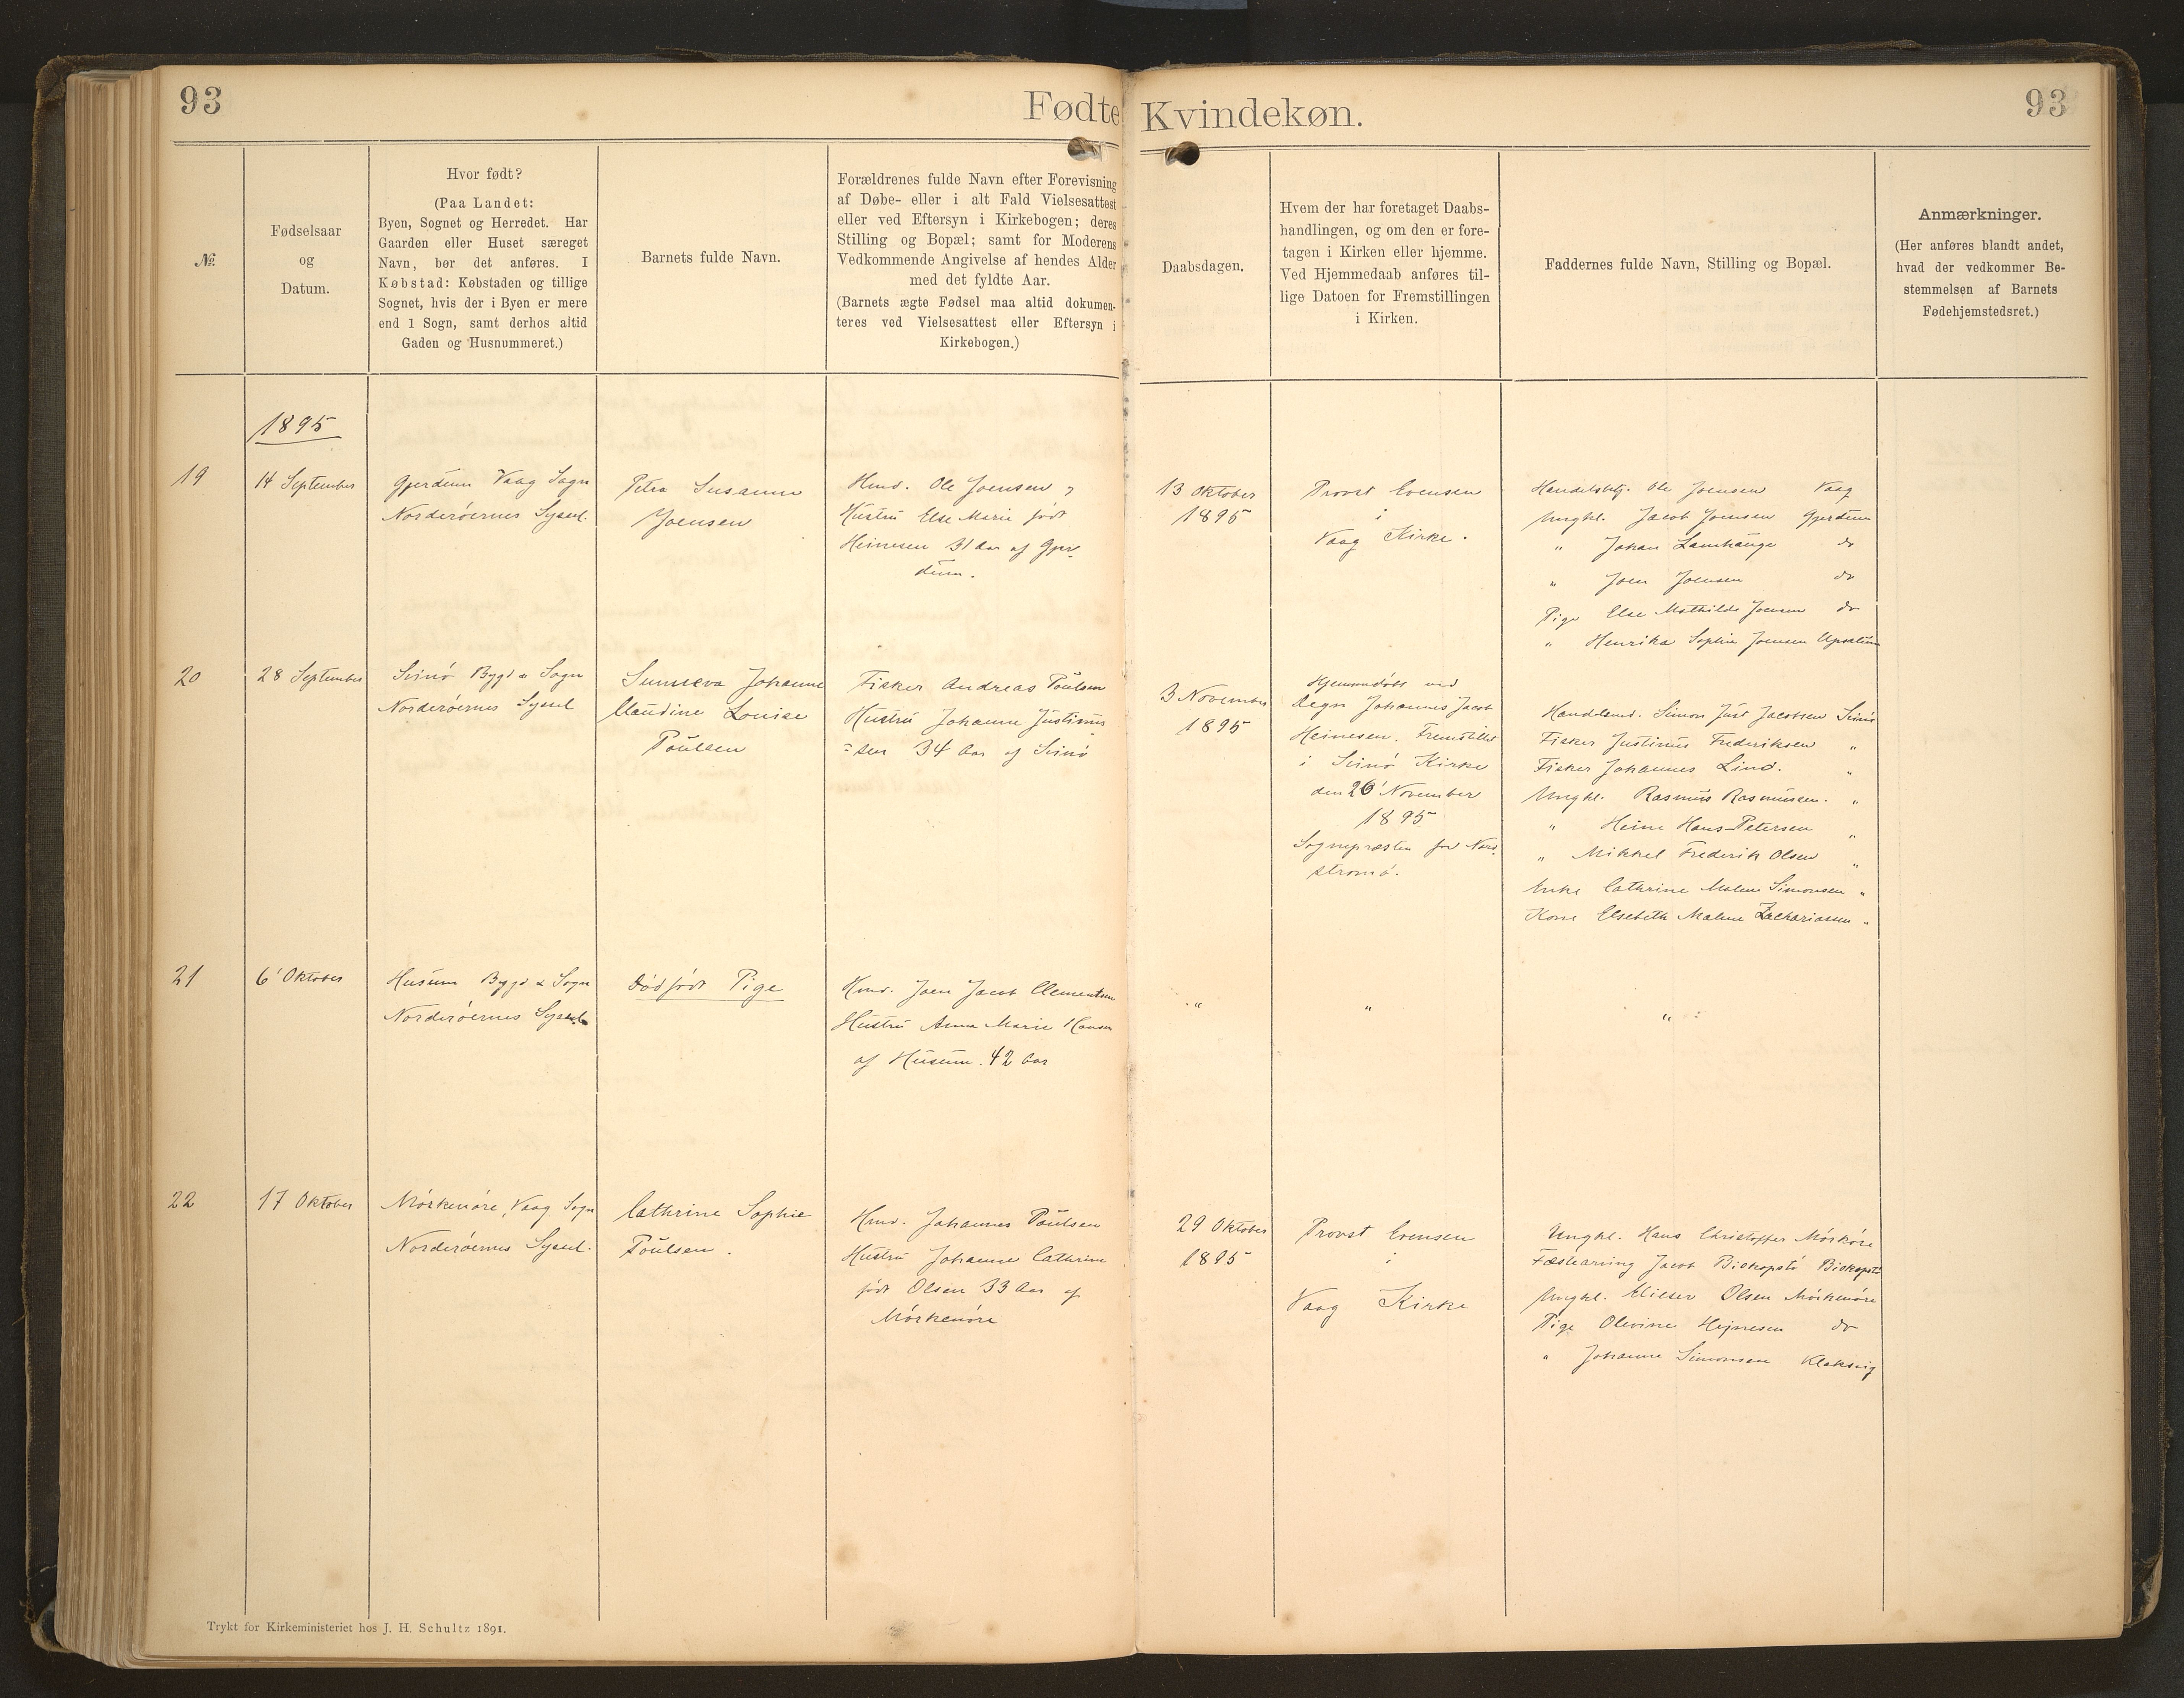 93
Fødte
Kvindekøn.
93
№
Fødselsaar
og
Datum.
Hvor født?
(Paa Landet:
Byen, Sognet og Herredet. Har
Gaarden eller Huset særeget
Navn, bør det anføres. I
Købstad: Købstaden og tillige
Sognet, hvis der i Byen er mere
end 1 Sogn, samt derhos altid
Gaden og Husnummeret.)
Barnets fulde Navn.
Forældrenes fulde Navn efter Forevisning
af Døbe- eller i alt Fald Vielsesattest
eller ved Eftersyn i Kirkebogen; deres
Stilling og Bopæl; samt for Moderens
Vedkommende Angivelse af hendes Alder
med det fyldte Aar.
(Barnets ægte Fødsel maa altid dokumen-
teres ved Vielsesattest eller Eftersyn i
Kirkebogen.)
Daabsdagen.
Hvem der har foretaget Daabs-
handlingen, og om den er fore-
tagen i Kirken eller hjemme.
Ved Hjemmedaab anføres til-
lige Datoen for Fremstillingen
i Kirken.
Faddernes fulde Navn, Stilling og Bopæl.
Anmærkninger.
(Her anføres blandt andet,
hvad der vedkommer Be-
stemmelsen af Barnets
Fødehjemstedsret.)
1895
19
14 September
Gjerdum Vaag Sogn
Norderöernes Syssel.
Petra Susanna
Joensen
Hmd. Ole Joensen
Hustru Else Marie født
Heinesen 31 Aar af Gjer-
dum.
13 Oktober
1895
Provst Evensen
i
Vaag Kirke.
Handelsbetj. Ole Joensen Vaag
Ungkl. Jacob Joensen Gjerdum
" Johan Lamhauge do
" Joen Joensen do
Pige Else Mathilde Joensen do
" Henrika Sophie Joensen
20
28 September
Svinö Bygd & Sogn
Norderöernes Syssel
Sunneva Johanne
Claudine Louise
Poulsen
Fisker Andreas Poulsen
Hustru Johanne Justinus
=sen 34 Aar af Svinö
3 November
1895
Hjemmedöbt ved
Degn Johannes Jacob
Heinesen. Fremstillet
i Svinö Kirke
den 26' November
1895
Sognepræsten for Nord-
strömö.
Handelsmd. Simon Just Jacobsen Svinö
Fisker Justinus Frederiksen "
Fisker Johannes Lind. "
Ungkl. Rasmus Rasmussen. "
" Heine Hans-Petersen "
" Mikkel Frederik Olsen "
Enke Cathrine Malene Simonsen "
Kone Elsebeth Malene Zachariasen "
21
6' Oktober
Husum Bygd & Sogn
Norderöernes Syssel
Dödfödt Pige
Hmd. Joen Jacob Clementsen
Hustru Anna Marie Hansen
af Husum. 42 Aar
"
"
"
22
17 Oktober
Mörkenöre, Vaag Sogn
Norderöernes Syssel.
Cathrine Sophie
Poulsen.
Hmd. Johannes Poulsen
Hustru Johanne Cathrine
født Olsen 33 Aar af
Mörkenöre
29 Oktober
1895
Provst Evensen
i
Vaag Kirke
Ungkl. Hans Christoffer Mörköre
Fæstearving Jacob Biskopstö Biskopstö
Ungkl. Elieser Olsen Mörkenöre
Pige Olevine Hejnesen do
" Johanne Simonsen Klaksvig
Trykt for Kirkeministeriet hos J. H. Schultz 1891.